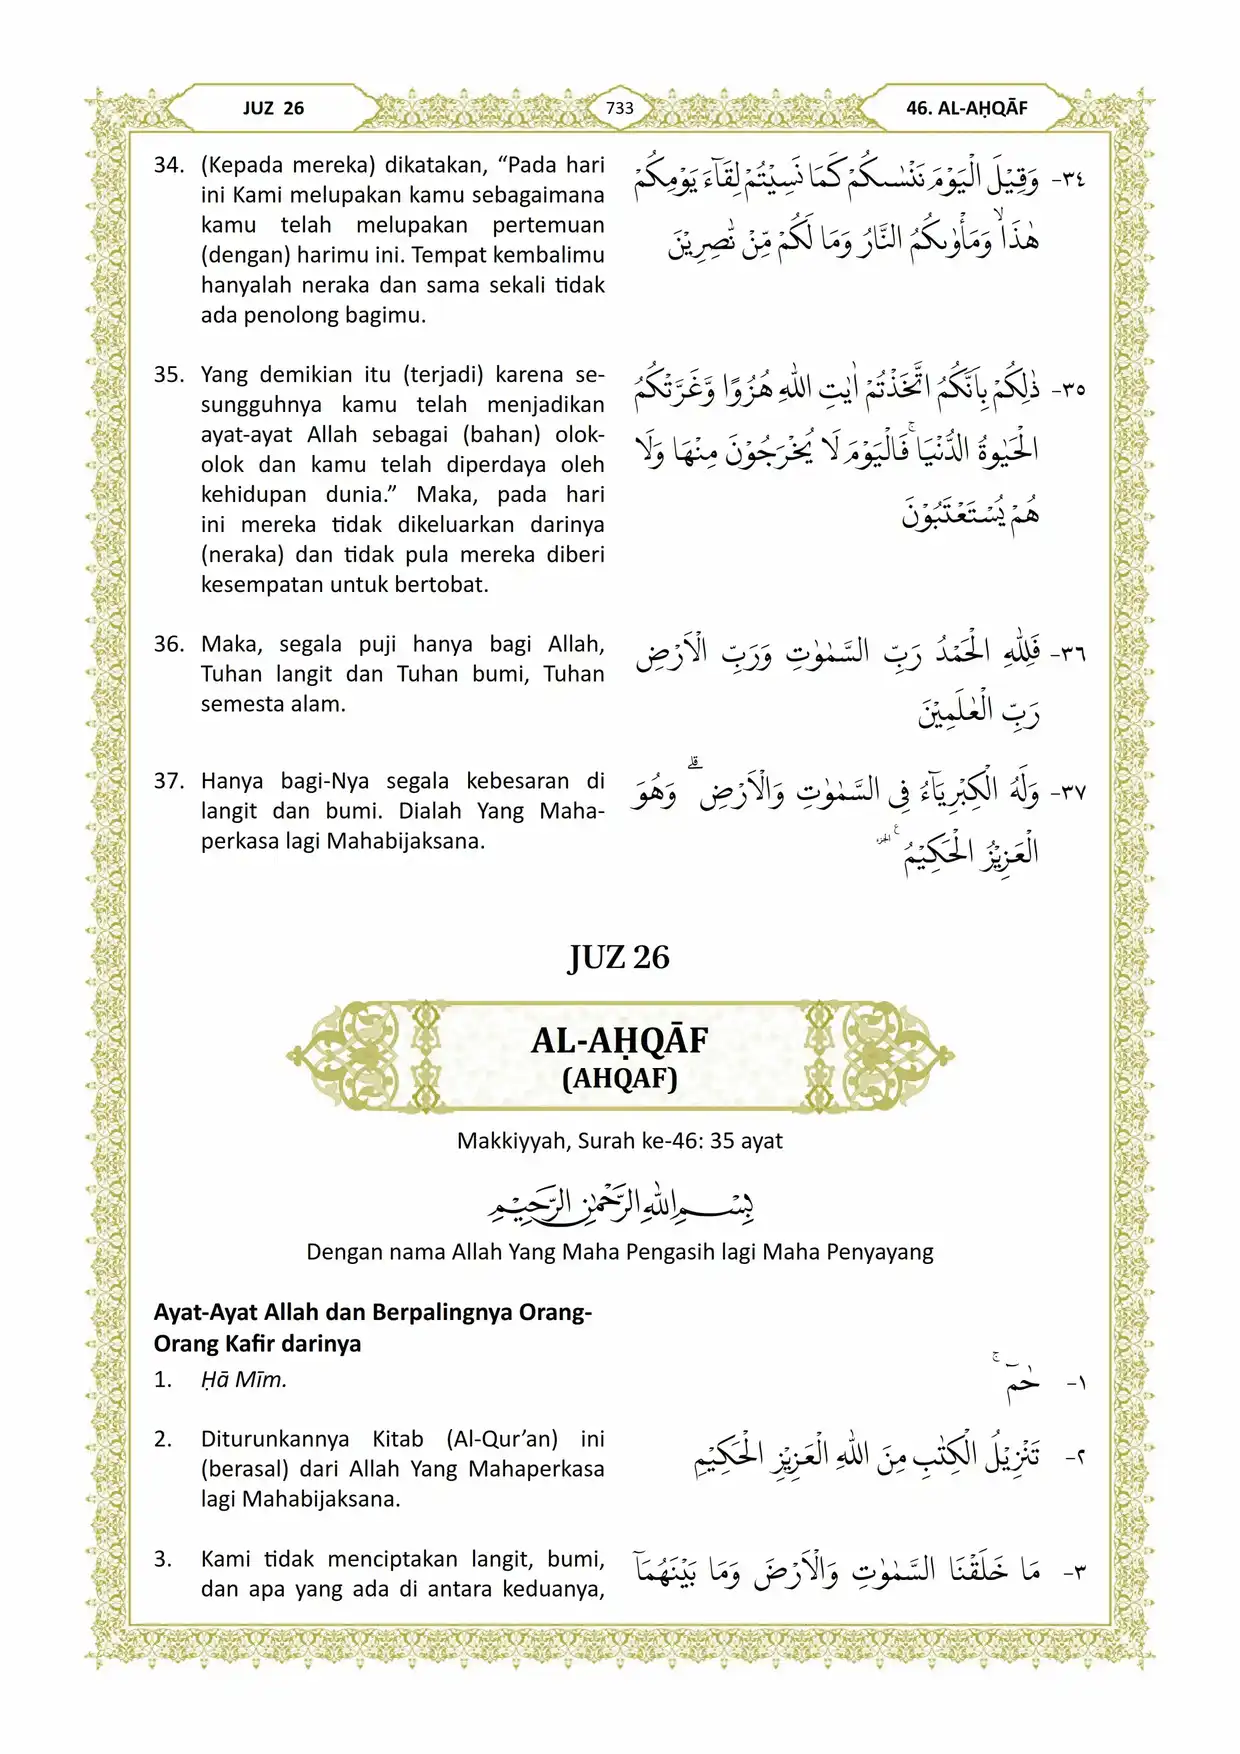 JUZ 26
733
46. AL-AḤQĀF
34. (Kepada mereka) dikatakan, “Pada hari
ini Kami melupakan kamu sebagaimana
kamu telah melupakan pertemuan
(dengan) harimu ini. Tempat kembalimu
hanyalah neraka dan sama sekali tidak
ada penolong bagimu.
٣٤- وَقِيْلَ الْيَوْمَ نَنْسٰىكُمْ كَمَا نَسِيْتُمْ لِقَاۤءَ يَوْمِكُمْ
هٰذَاۙ وَمَأْوٰىكُمُ النَّارُ وَمَا لَكُمْ مِّنْ نّٰصِرِيْنَ
35. Yang demikian itu (terjadi) karena se-
sungguhnya kamu telah menjadikan
ayat-ayat Allah sebagai (bahan) olok-
olok dan kamu telah diperdaya oleh
kehidupan dunia.” Maka, pada hari
ini mereka tidak dikeluarkan darinya
(neraka) dan tidak pula mereka diberi
kesempatan untuk bertobat.
٣٥- ذٰلِكُمْ بِاَنَّكُمُ اتَّخَذْتُمْ اٰيٰتِ اللّٰهِ هُزُوًا وَّغَرَّتْكُمُ
الْحَيٰوةُ الدُّنْيَاۚ فَالْيَوْمَ لَا يُخْرَجُوْنَ مِنْهَا وَلَا
هُمْ يُسْتَعْتَبُوْنَ
36. Maka, segala puji hanya bagi Allah,
Tuhan langit dan Tuhan bumi, Tuhan
semesta alam.
٣٦- فَلِلّٰهِ الْحَمْدُ رَبِّ السَّمٰوٰتِ وَرَبِّ الْاَرْضِ
رَبِّ الْعٰلَمِيْنَ
37. Hanya bagi-Nya segala kebesaran di
langit dan bumi. Dialah Yang Maha-
perkasa lagi Mahabijaksana.
٣٧- وَلَهُ الْكِبْرِيَاۤءُ فِى السَّمٰوٰتِ وَالْاَرْضِۗ وَهُوَ
الْعَزِيْزُ الْحَكِيْمُ ࣖ الجزء
JUZ 26
AL-AḤQĀF
(AHQAF)
Makkiyyah, Surah ke-46: 35 ayat
بِسْمِ اللّٰهِ الرَّحْمٰنِ الرَّحِيْمِ
Dengan nama Allah Yang Maha Pengasih lagi Maha Penyayang
Ayat-Ayat Allah dan Berpalingnya Orang-
Orang Kafir darinya
1. Ḥā Mīm.
١- حٰمۤ ۚ
2. Diturunkannya Kitab (Al-Qur’an) ini
(berasal) dari Allah Yang Mahaperkasa
lagi Mahabijaksana.
٢- تَنْزِيْلُ الْكِتٰبِ مِنَ اللّٰهِ الْعَزِيْزِ الْحَكِيْمِ
3. Kami tidak menciptakan langit, bumi,
dan apa yang ada di antara keduanya,
٣- مَا خَلَقْنَا السَّمٰوٰتِ وَالْاَرْضَ وَمَا بَيْنَهُمَآ